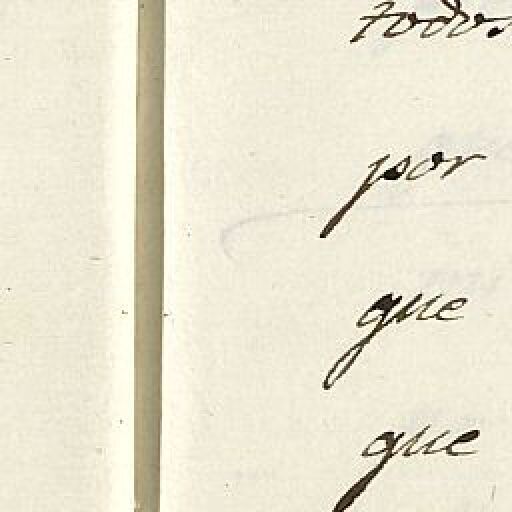 todos
por
que
que